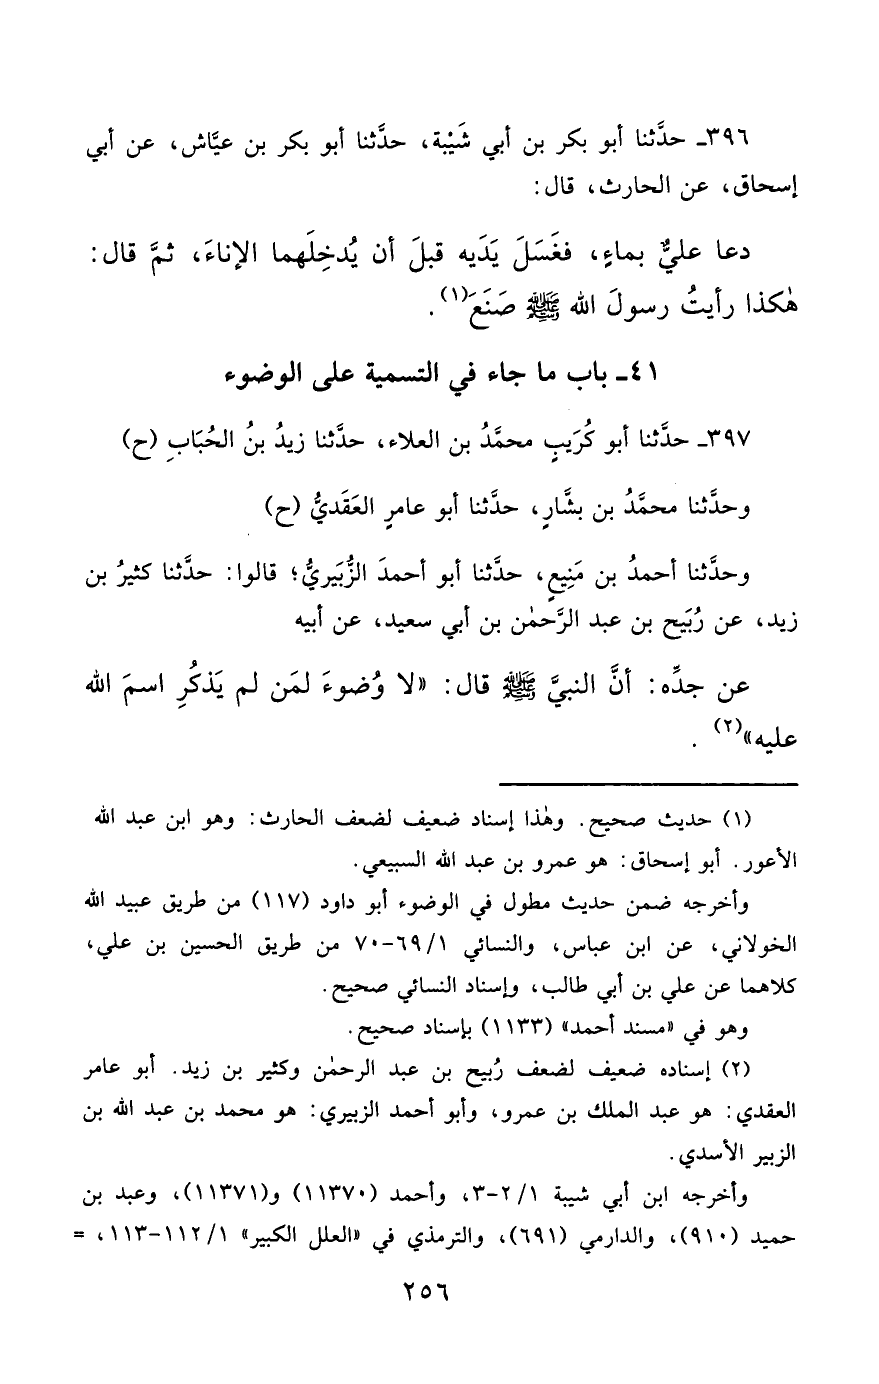 ٣٩٦ـ حدَّثنا أبو بكر بن أبي شَيْبة، حدَّثنا أبو بكر بن عيَّاش، عن أبي
إسحاق، عن الحارث، قال:
دعا عليٌّ بماءٍ، فغَسَلَ يَدَيه قبلَ أن يُدخِلَهما الإناءَ، ثمَّ قال:
هٰكذا رأيتُ رسولَ الله ﷺ صَنَعَ(١).
٤١ـ باب ما جاء في التسمية على الوضوء
٣٩٧ـ حدَّثنا أبو كُرَيبٍ محمَّدُ بن العلاء، حدَّثنا زيدُ بنُ الحُبَابِ (ح)
وحدَّثنا محمَّدُ بن بشَّارٍ، حدَّثنا أبو عامرٍ العَقَديُّ (ح)
وحدَّثنا أحمدُ بن مَنِيعٍ، حدَّثنا أبو أحمدَ الزُّبَيريُّ؛ قالوا: حدَّثنا كثيرُ بن
زيد، عن رُبَيح بن عبد الرَّحمٰن بن أبي سعيد، عن أبيه
عن جدِّه: أنَّ النبيَّ ﷺ قال: «لا وُضوءَ لمَن لم يَذكُرِ اسمَ الله
عليه»(٢) .
(١) حديث صحيح. وهٰذا إسناد ضعيف لضعف الحارث: وهو ابن عبد الله
الأعور. أبو إسحاق: هو عمرو بن عبد الله السبيعي.
وأخرجه ضمن حديث مطول في الوضوء أبو داود (١١٧) من طريق عبيد الله
الخولاني، عن ابن عباس، والنسائي ١/ ٦٩-٧٠ من طريق الحسين بن علي،
كلاهما عن علي بن أبي طالب، وإسناد النسائي صحيح.
وهو في «مسند أحمد» (١١٣٣) بإسناد صحيح.
(٢) إسناده ضعيف لضعف رُبيح بن عبد الرحمٰن وكثير بن زيد. أبو عامر
العقدي: هو عبد الملك بن عمرو، وأبو أحمد الزبيري: هو محمد بن عبد الله بن
الزبير الأسدي.
وأخرجه ابن أبي شيبة ١/ ٢-٣، وأحمد (١١٣٧٠) و(١١٣٧١)، وعبد بن
حميد (٩١٠)، والدارمي (٦٩١)، والترمذي في «العلل الكبير» ١/ ١١٢-١١٣، =
٢٥٦